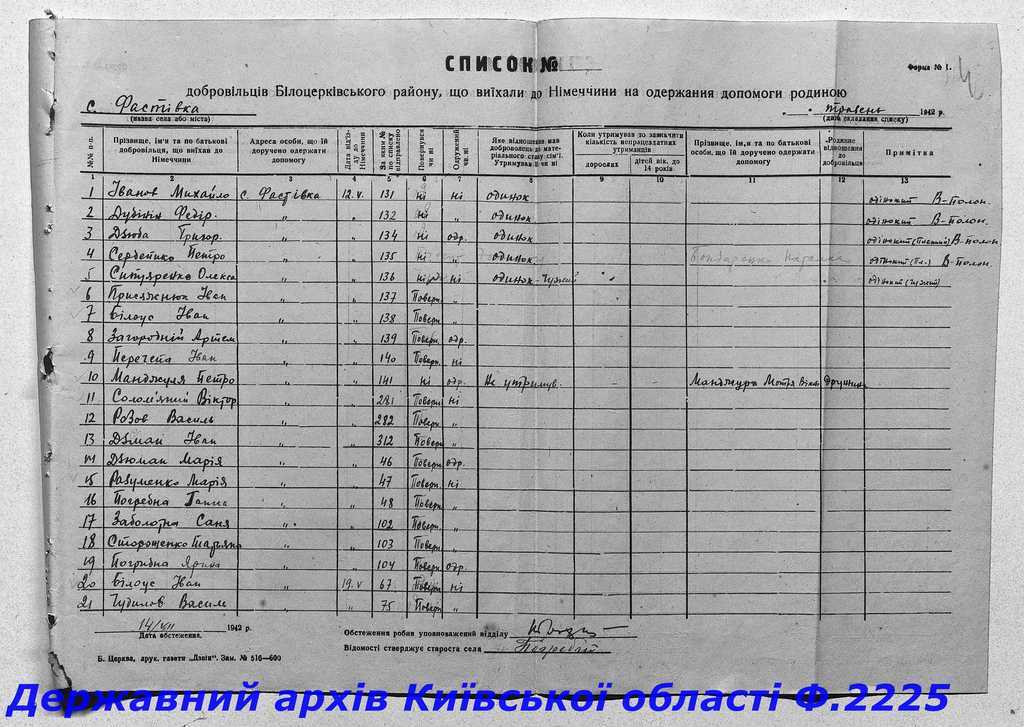 СПИСОК №
Форма № 1.
добровільців Білоцерківського району, що виїхали до Німеччини на одержання допомоги родиною
с. Фастівка
(назва села або міста)
травень 1942 р.
(дата складання списку)
№№ п-п. Прізвище, ім'я та по батькові добровільця, що виїхав до Німеччини Адреса особи, що їй доручено одержати допомогу Дата від'їзду до Німеччини За яким № по списку відправлено Повернувся чи ні Одружений чи ні Яке відношення мав доброволець до матеріального стану сім'ї. Утримував її чи ні Коли утримував то зазначити кількість непрацездатних утриманців дорослих дітей вік. до 14 років Прізвище, ім'я та по батькові особи, що їй доручено одержати допомогу Родинне відношення до добровільця Примітка
1 2 3 4 5 6 7 8 9 10 11 12 13
1 Іванов Михайло с. Фастівка 12.V. 131 ні ні одинок одінокий В-полон.
2 Дубінін Федір. " " 132 ні " одинок одінокий В-полон.
3 Дзюба Григор. " " 134 ні одр. одинок одінокий В-полон
4 Петро " " 135 ні " одинок В-полон.
5 Ситяренко Олекса " " 136 ні одинок-чужий одінокий (чужий)
6 Присяжнюк Іван " " 137 Поверн. "
7 Білоус Іван " " 138 Поверн. "
8 Загородній Артем " " 139 Поверн. одр.
9 Перечета Іван " " 140 Поверн. ні
10 Манджула Петро " " 141 ні одр. не утримув. Манджура Мотря Дружина
11 Солом'яний Віктор " " 281 Поверн ні
12 Розов Василь " " 282 Поверн. "
13 Дзіман Іван " " 312 Поверн "
14 Дзюман Марія " " 46 Поверн. одр.
15 Разуменко Марія " " 47 Поверн. ні
16 Погребна Ганна " " 48 Поверн. "
17 Заболотна Саня " " 102 Поверн. "
18 Стороженко Тетяна " " 103 Поверн. "
19 Погрибна Ярина " " 104 Поверн. одр.
20 Білоус Іван " 19.V 67 Поверн ні
21 Чудинов Васил " " 75 Поверн "
14/VII 1942 р.
Дата обстеження.
Обстеження робив уповноважений відділу
Відомості стверджує староста села
Б. Церква, друк. газети „Дзвін". Зам. № 516—600
Державний архів Київської області Ф.2225